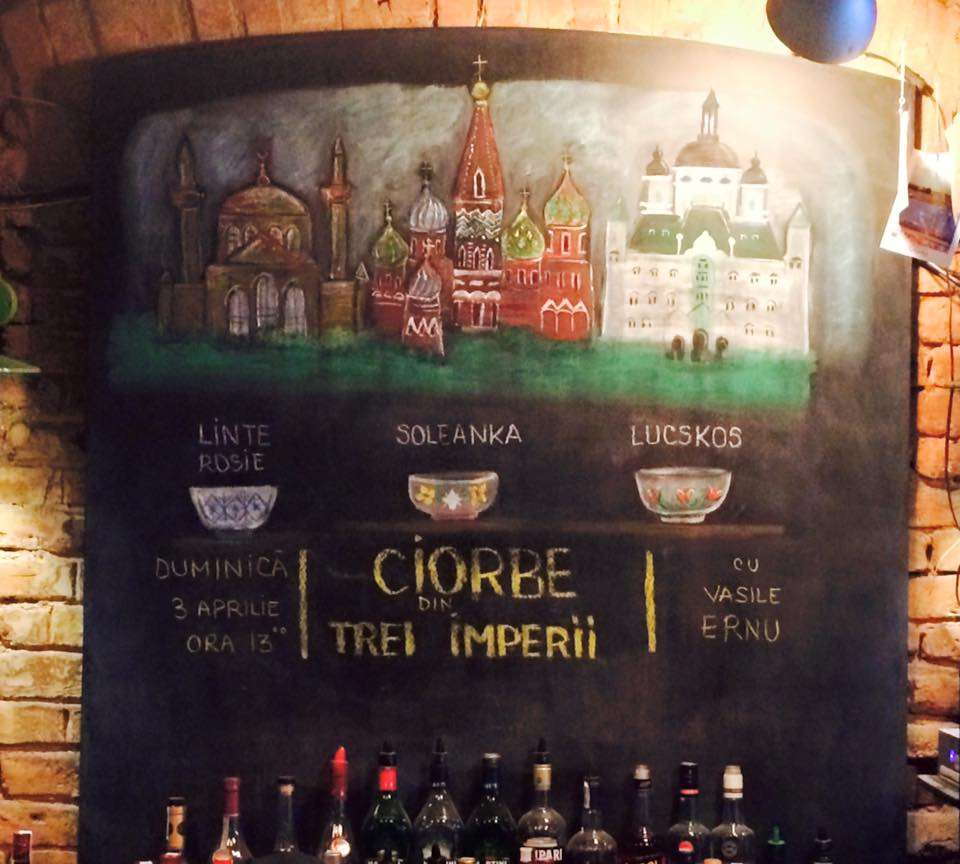 LINTE
ROSIE
SOLEANKA
LUCSKOS
DUMINICĂ
3 APRILIE
ORA 13⁰⁰
CIORBE
DIN
TREI IMPERII
CU
VASILE
ERNU